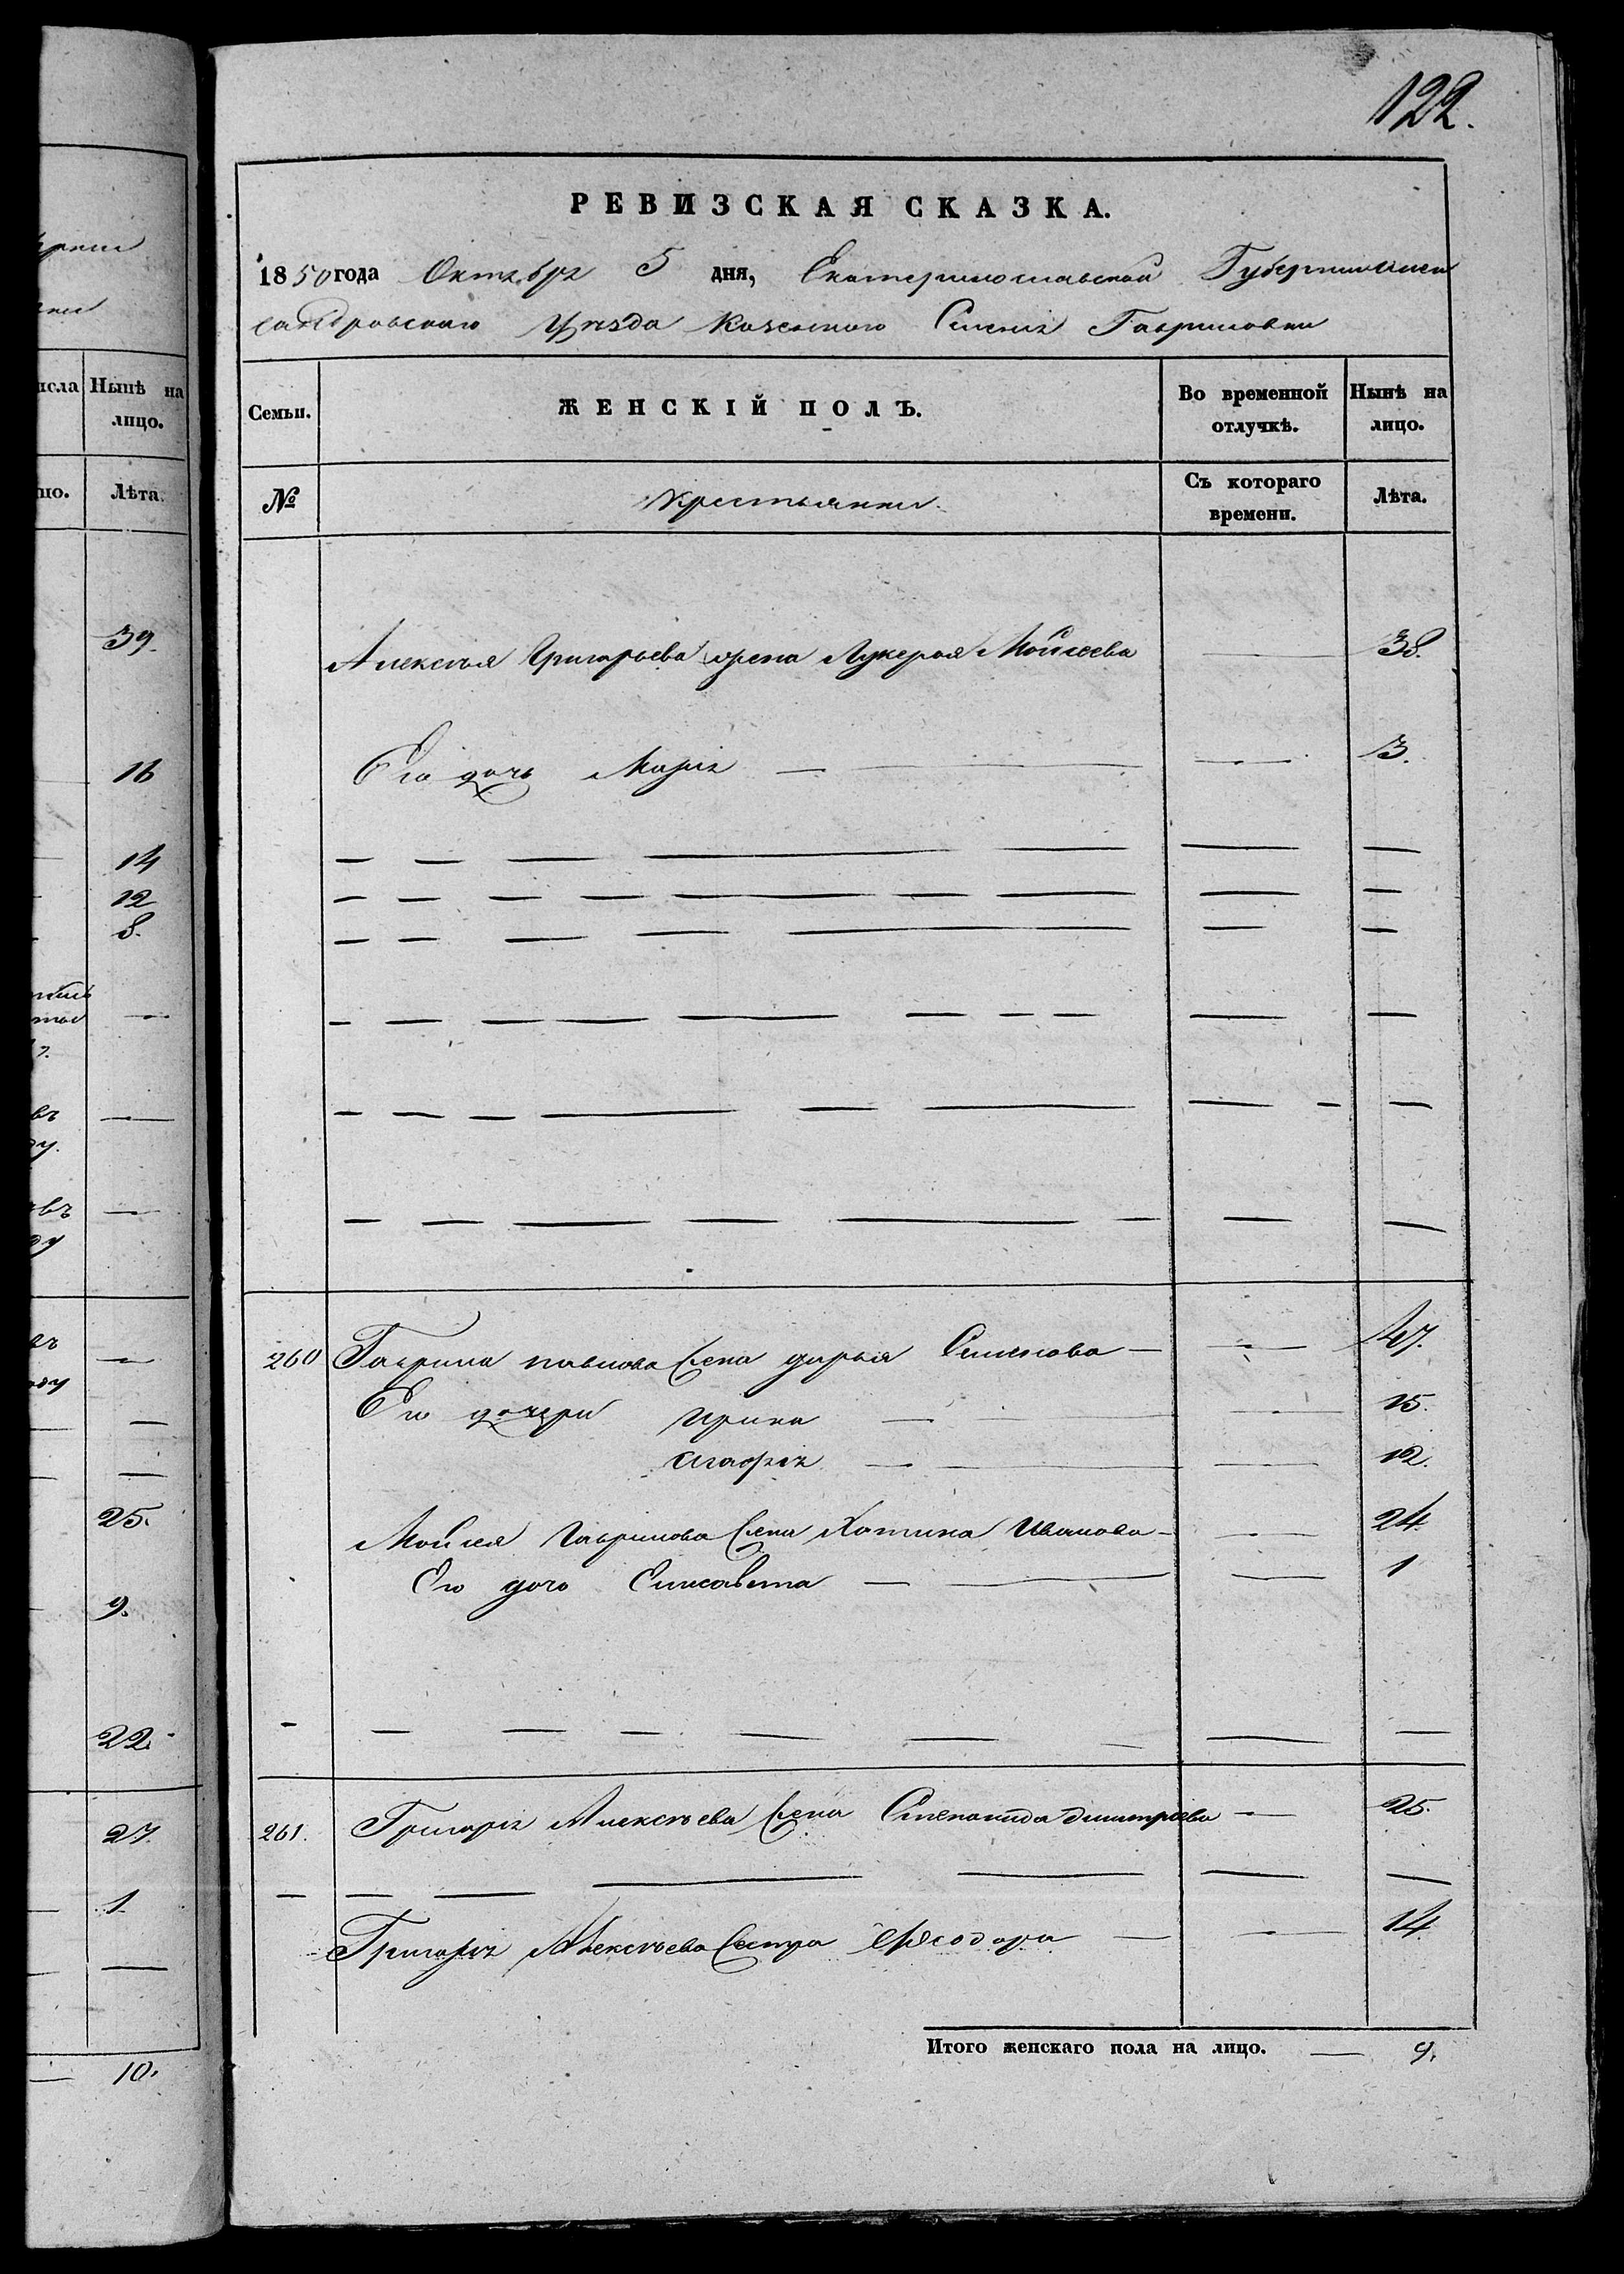 122.
РЕВИЗСКАЯ СКАЗКА.
1850 года Октября 5 дня, Екатеринославской Губернии Алек
сандровского Уезда Казенного Селения Гавриловки
Семьи.
ЖЕНСКІЙ ПОЛЪ.
Во временной отлучкѣ.
Нынѣ на лицо.
№
Крестьянки.
Съ котораго времени.
Лѣта.
Алексея Григорьева жена Лукерья Мойсеева — 38.
Его дочь Марія — — 3.
260 Гаврила павлова жена дарья Семенова — — 47.
Его дочери Ирина — — 15.
Агафія — — 12.
Мойсея Гаврилова жена Хотина Иванова — — 24.
Его дочь Елисавета — — 1
261. Григорія Алексѣева жена Степанида дмитріева — 25.
Григорія Алексѣева Сестра Феодора — — 14.
Итого женскаго пола на лицо. — 9.
исла
Нынѣ на лицо.
Лѣта.
39.
16
14
12
8.
25.
9.
22.
27.
1
10.